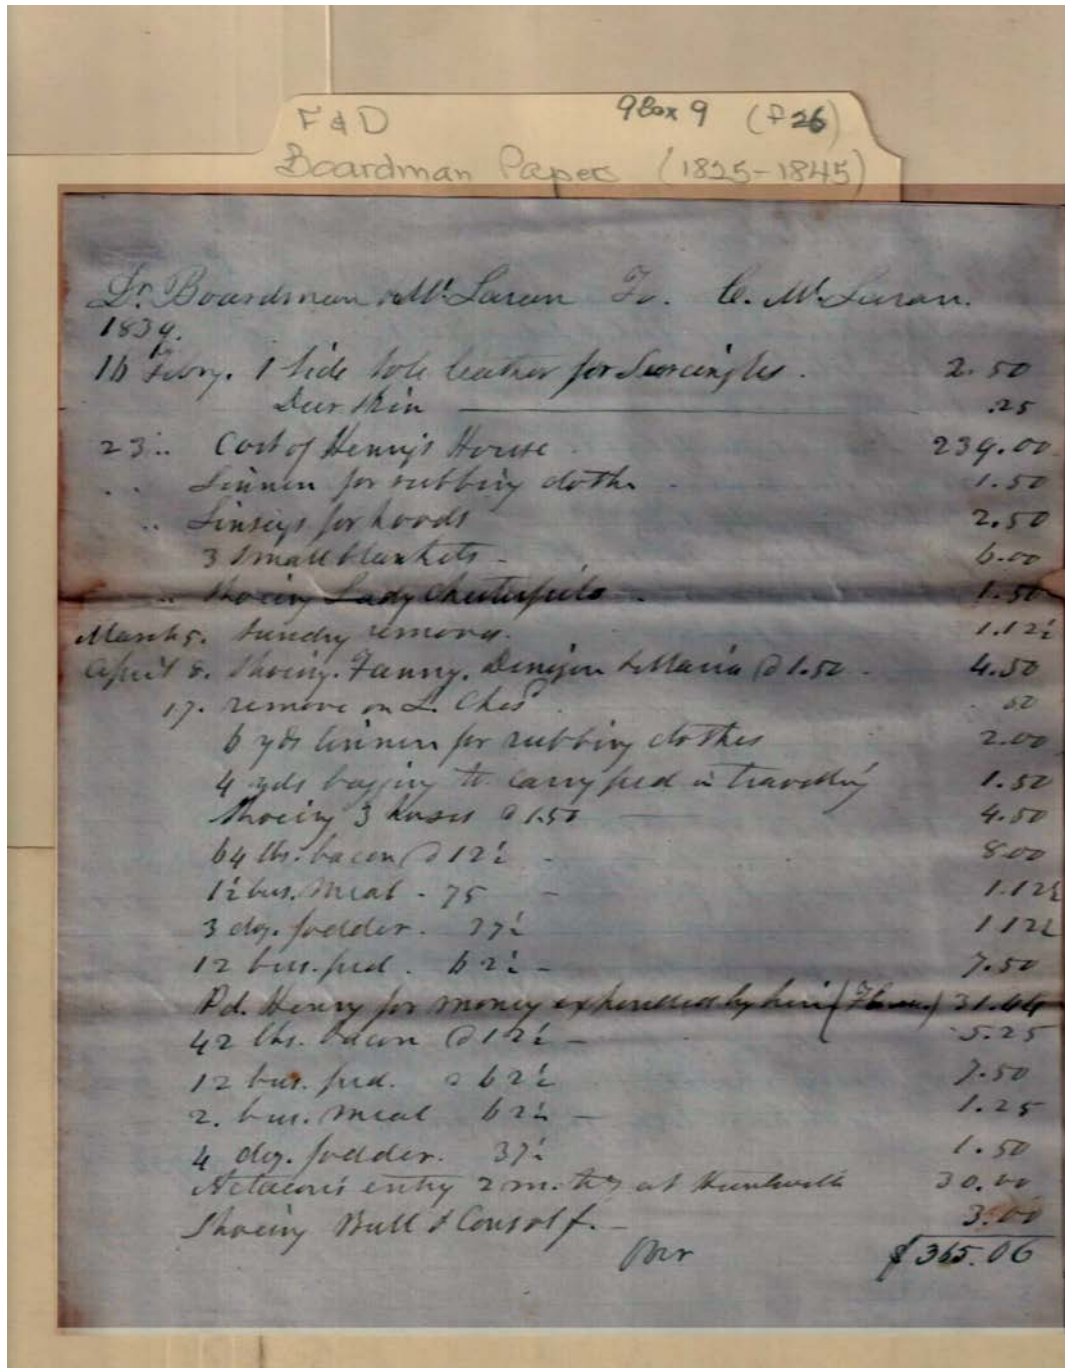 F & D 9 Box 9 (f 26)
Boardman Papers (1825-1845)
Dr. Boardman & McLaran To. C. McLaran.
1839.
16 Febry. 1 Side Sole leather for Surcingles. 2.50
Deer Skin .25
23 .. Cost of Henry's House 239.00
.. Linnen for rubbing cloths 1.50
.. Linseys for hoods 2.50
3 small blankets - 6.00
.. Shoeing Lady Chesterfield 1.50
March 5. Sundry removes. 1.12½
April 8. Shoeing. Fanny, & Maria @ 1.50 - 4.50
17. remove on L. Chesd. .50
6 yds linnen for rubbing clothes 2.00
4 yds bagging to carry feed in travelling 1.50
Shoeing 3 horses @ 1.50 4.50
64 lbs. bacon @ 12½ - 8.00
1½ bus. Meal - 75 - 1.12½
3 doz. fodder. 37½ 1.12½
12 bus. feed. 62½ - 7.50
Pd. Henry for money expended by him 31.44
42 lbs. bacon @ 12½ - 5.25
12 bus. feed. @ 62½ 7.50
2. bus. Meal 62½ - 1.25
4 doz. fodder. 37½ 1.50
entry 2 m. at Huntsville 30.00
Shoeing Bull & Consol f. - 3.00
Over $365.06